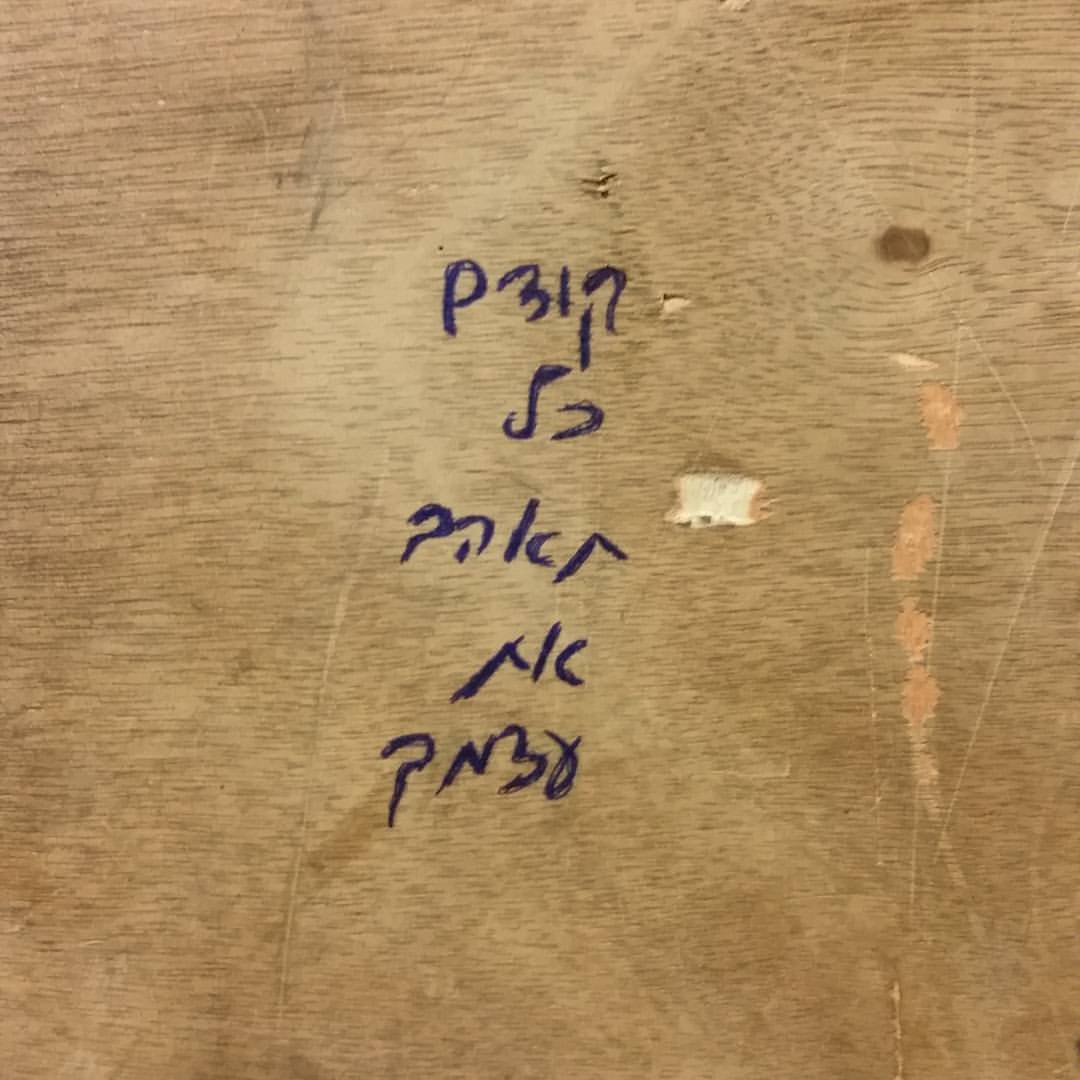 קודם
כל
תאהב
את
עצמך